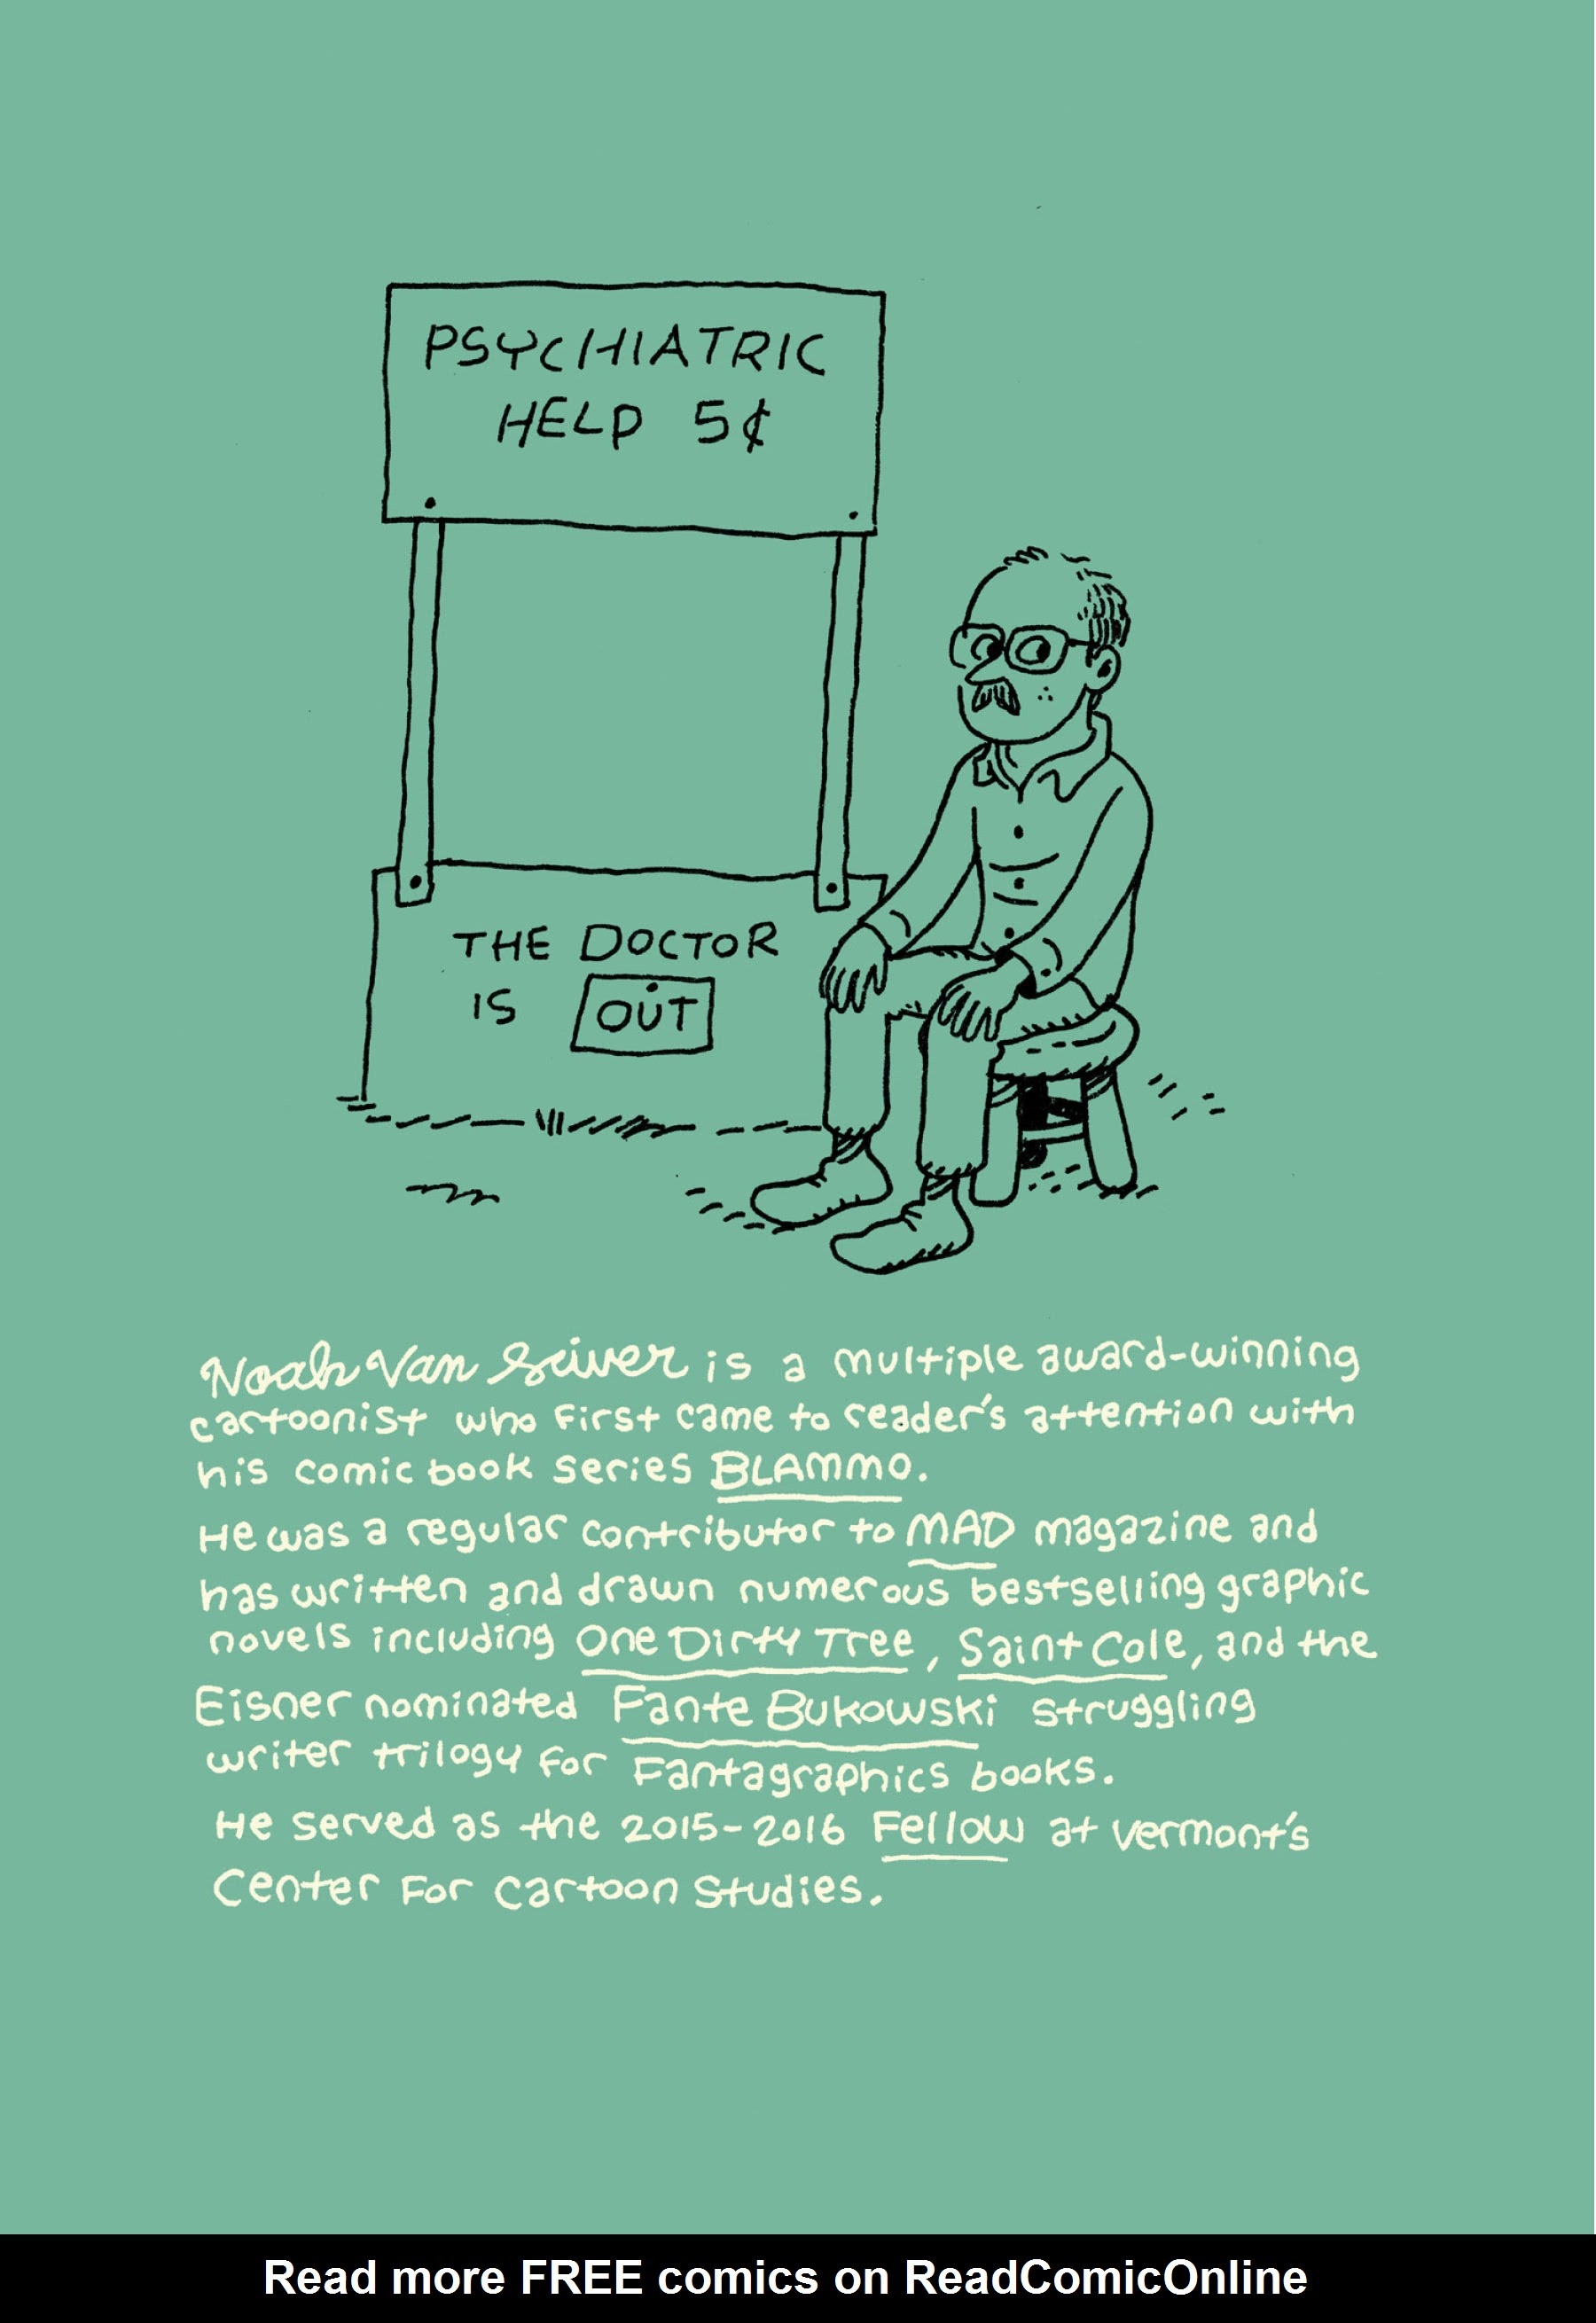 PSYCHIATRIC
HELP 5¢
THE DOCTOR
IS OUT
Noah Van Sciver is a multiple award-winning
cartoonist who first came to reader's attention with
his comic book series BLAMMO.
He was a regular contributor to MAD magazine and
has written and drawn numerous bestselling graphic
novels including One Dirty Tree, Saint Cole, and the
Eisner nominated Fante Bukowski struggling
writer trilogy for Fantagraphics books.
He served as the 2015-2016 Fellow at Vermont's
Center For Cartoon Studies.
Read more FREE comics on ReadComicOnline